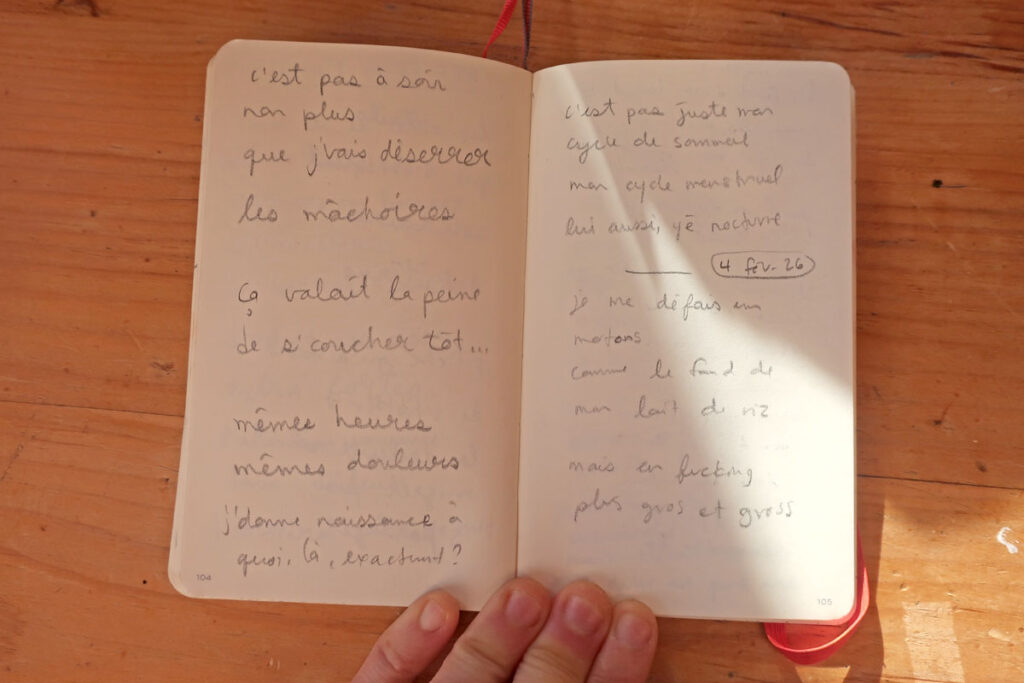 c'est pas à soir
non plus
que j'vais désserrer
les mâchoires
ça valait la peine
de s'coucher tôt...
mêmes heures
mêmes douleurs
j'donne naissance à
quoi, là, exactement ?
104
c'est pas juste mon
cycle de sommeil
mon cycle menstruel
lui aussi, yé nocturne
4 fév. 26
je me défais en
motons
comme le fond de
mon lait de riz
mais en fucking
plus gros et gross
105